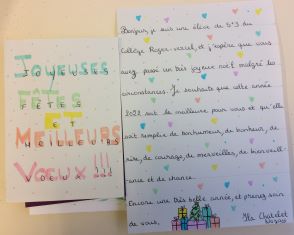 JOYEUSES
JOYEUSES
FÊTES
FÊTES
ET
ET
MEILLEURS
MEILLEURS
VOEUX !!!
VOEUX !!!
Bonjour, je suis une élève de 5°3 du
Collège Roger-vercel, et j'espère que vous
avez passé un très joyeux noël malgré les
circonstances. Je souhaite que cette année
2022 soit la meilleure pour vous et qu'elle
soit remplie de bonne humeur, de bonheur, de
rire, de courage, de merveilles, de bienveill-
ance et de chance.
Encore une très belle année, et prenez soin
de vous,
Chatelet